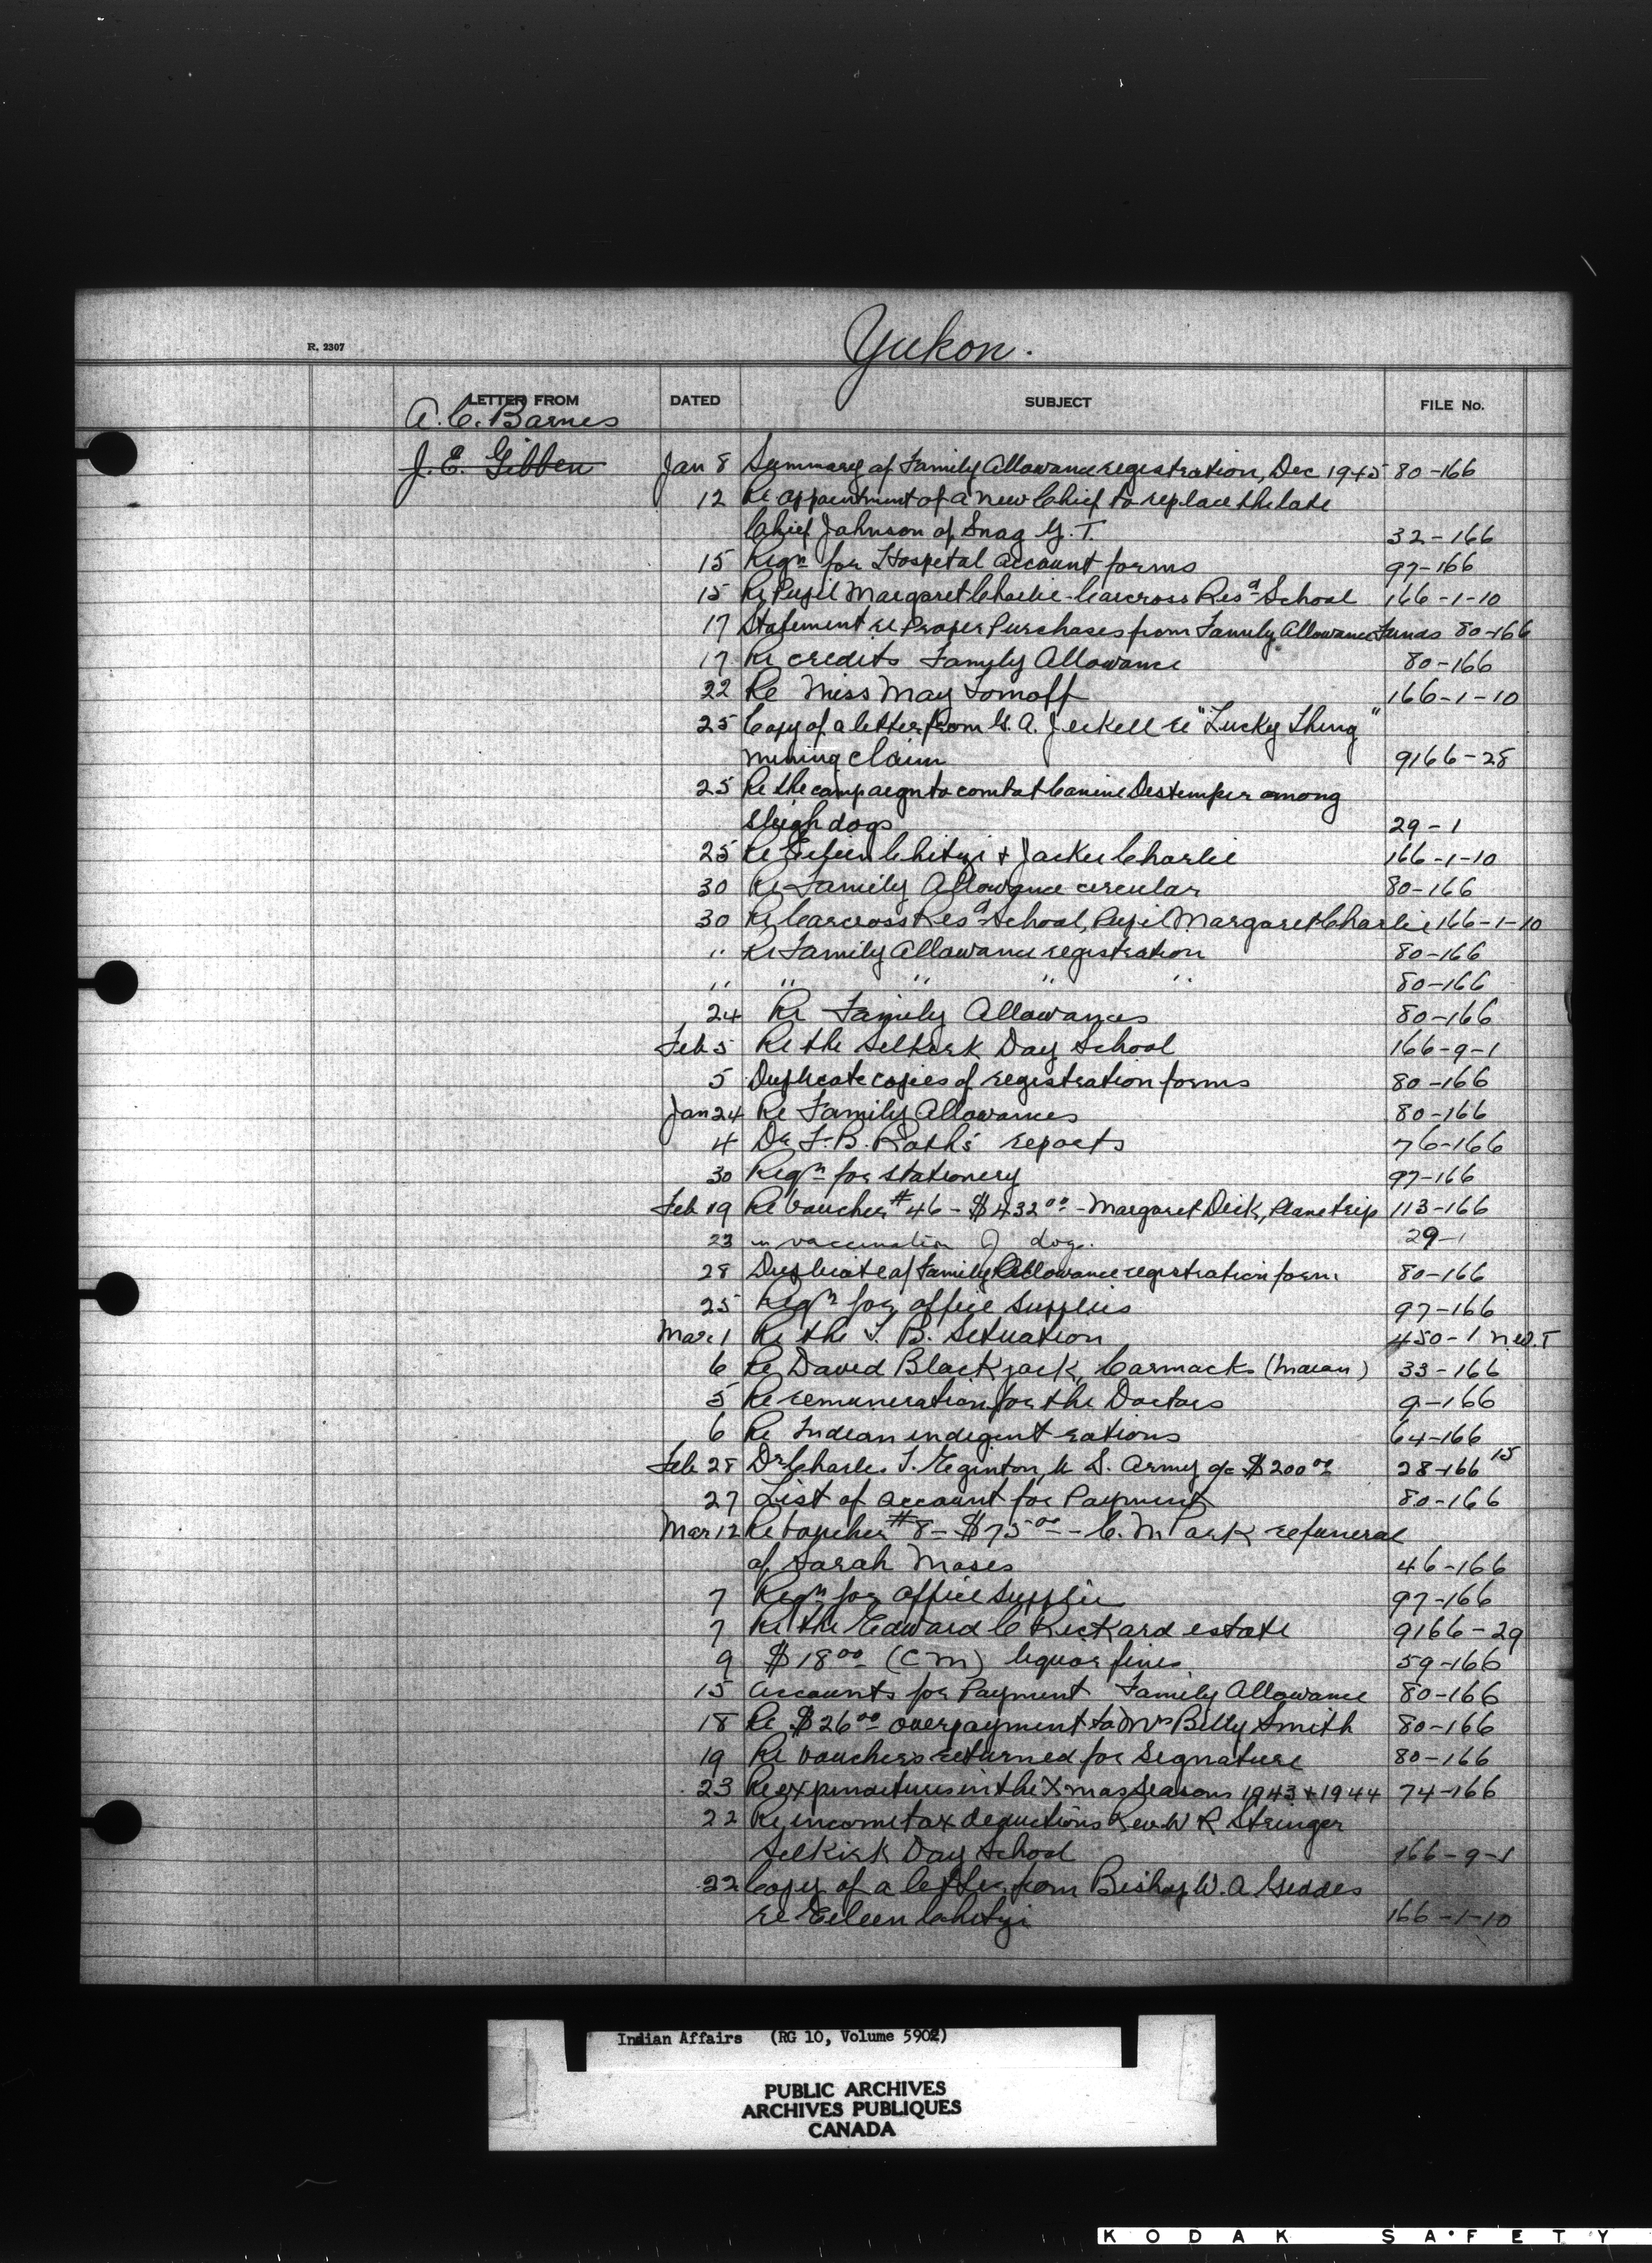 Yukon.
R. 2307
LETTER FROM DATED SUBJECT FILE No.
A. C. Barnes
J. E. Gibben Jan 8 Summary of Family Allowance registration, Dec 1945 80-166
12 Re appointment of a new Chief to replace the late
Chief Johnson of Snag Y. T. 32-166
15 Reqn for Hospital Account forms 97-166
15 Re Pupil Margaret Charlie - Carcross Resd School 166-1-10
17 Statement re Proper Purchases from Family Allowance Funds 80-166
17 Re credits Family Allowance 80-166
22 Re Miss May Tomoff 166-1-10
25 Copy of a letter from G. A. Jeckell re "Lucky Thing"
mining claim 9166-28
25 Re the campaign to combat Canine Distemper among
sleigh dogs 29-1
25 Re Eileen Chitzi & Jackie Charlie 166-1-10
30 Re Family Allowance circular 80-166
30 Re Carcross Resd School, Pupil Margaret Charlie 166-1-10
" Re Family Allowance registration 80-166
" " " " " 80-166
24 Re Family Allowances 80-166
Feb 5 Re the Selkirk Day School 166-9-1
5 Duplicate copies of registration forms 80-166
Jan 24 Re Family Allowances 80-166
4 Dr F. B. Roth's reports 76-166
30 Reqn for stationery 97-166
Feb 19 Re Voucher #46 - $432.00 - Margaret Dick, Plane trip 113-166
23 re vaccination of dogs. 29-1
28 Duplicate of Family Allowance registration form 80-166
25 Reqn for office supplies 97-166
Mar 1 Re the T. B. Situation 450-1 N.W.T
6 Re David Blackjack, Carmacks (Indian) 33-166
5 Re remuneration for the Doctors 9-166
6 Re Indian indigent rations 64-166
Feb 28 Dr Charles T. Eginton, U. S. Army a/c $200.00 28-166 15
27 List of account for Payment 80-166
Mar 12 Re Voucher #8 - $75.00 - C. M Park re funeral
of Sarah Moses 46-166
7 Reqn for office supplies 97-166
7 Re the Edward C Rickard estate 9166-29
9 $18.00 (CM) liquor fines 59-166
15 Accounts for Payment Family Allowance 80-166
18 Re $26.00 overpayment to Mrs Billy Smith 80-166
19 Re vouchers returned for Signature 80-166
23 Re expenditures in the Xmas Seasons 1943 & 1944 74-166
22 Re income tax deductions Rev. W R Stringer
Selkirk Day School 166-9-1
22 Copy of a letter from Bishop W. A Geddes
re Eileen Chitzi 166-1-10
Indian Affairs (RG 10, Volume 5902)
PUBLIC ARCHIVES
ARCHIVES PUBLIQUES
CANADA
KODAK SAFETY